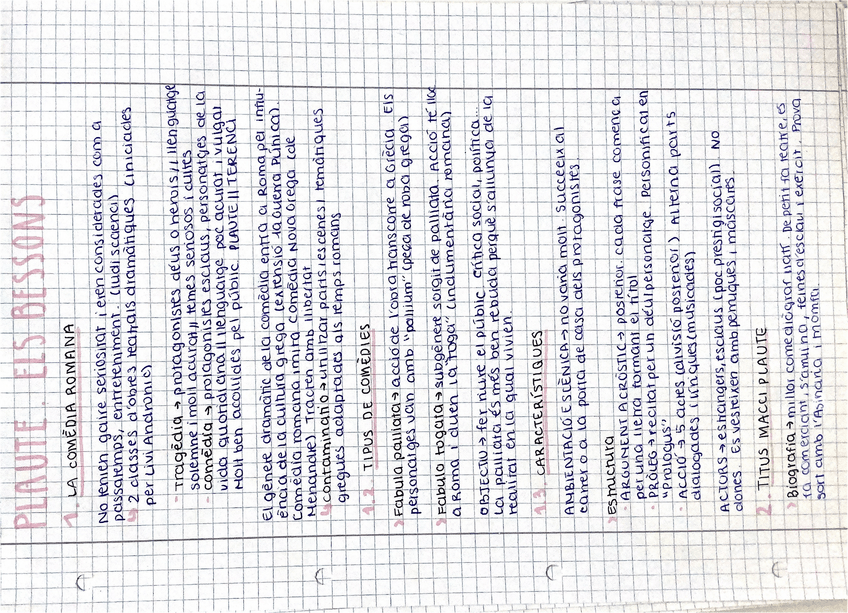 PLAUTE. ELS BESSONS
1. LA COMÈDIA ROMANA
No tenien gaire seriositat i eren considerades com a
passatemps, entreteniment. (ludi scaenci)
↳ 2 classes d'obres teatrals dramàtiques (iniciades
per Livi Andrònic)
- Tragèdia → protagonistes déus o herois // llenguatge
solemne i molt acurat // temes seriosos i cultes
- Comèdia → protagonistes esclaus, personatges de la
vida quandiana // llenguatge poc acurat i vulgar
Molt ben acollides pel públic. PLAUTE // TERENCI
El gènere dramàtic de la comèdia entra a Roma per influ-
ència de la cultura grega (extensió 1a Guerra Púnica).
Comèdia romana imita Comèdia Nova Grega (de
Menandre). Tracten amb llibertat
↳ contaminatio → utilitzar parts (escenes) temàtiques
gregues adaptades als temps romans
1.2. TIPUS DE COMÈDIES
> Fabula palliata → acció de l'obra transcorre a Grècia. Els
personatges van amb "pallium" (peça de roba grega)
> Fabula togata → subgènere sorgit de palliata. Acció té lloc
a Roma i duien la "toga" (indumentària romana)
OBJECTIU → fer riure el públic. Crítica social, política...
La palliata és més ben rebuda perquè s'allunya de la
realitat en la qual vivien.
1.3. CARACTERÍSTIQUES
AMBIENTACIÓ ESCÈNICA → no varia molt. Succeeix al
carrer o a la porta de casa dels protagonistes.
> Estructura
- ARGUMENT ACRÒSTIC → posterior. cada frase comença
per una lletra formant el títol
- PRÒLEG → recitat per un déu/personatge. Personificat en
"Prologus"
- ACCIÓ → 5 actes (divisió posterior) Alterna parts
dialogades i líriques (musicades)
ACTORS → estrangers, esclaus (poc prestigi social). NO
dones. Es vesteixen amb perruques i màscares.
2. TITUS MACCI PLAUTE
> Biografia → millor comediògraf llatí. De petit fa teatre, es
fa comerciant, s'arruïna, feines d'esclau i exèrcit. Prova
sort amb l'Asinaria i triomfa.